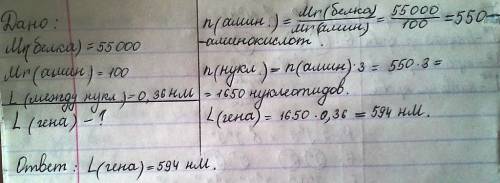 Дано:
Mr(белка)=55000
Mr(амин)=100
L(между нукл)=0,36 нм
L(гена) - ?
n(амин.) = Mr(белка)/Mr(амин) = 55000/100 = 550 -
-аминокислот.
n(нукл.) = n(амин)·3 = 550·3 =
= 1650 нуклеотидов.
L(гена) = 1650·0,36 = 594 нм.
Ответ: L(гена)=594 нм.